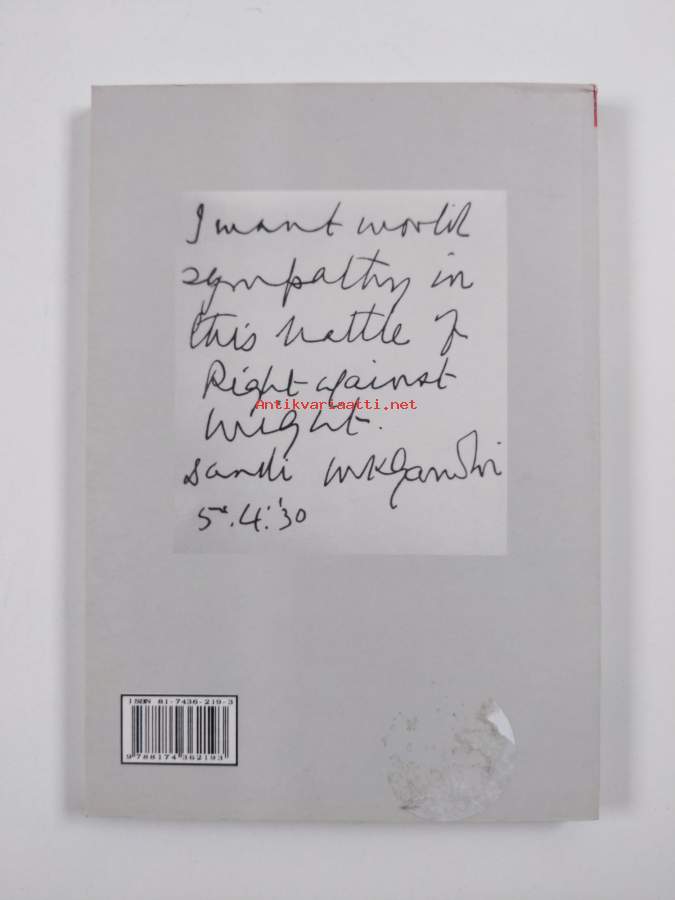 I want world
sympathy in
this battle of
Right against
Antikvariaatti.net
might.
Dandi MKGandhi
5.4.'30
ISBN 81-7436-219-3
9788174362193